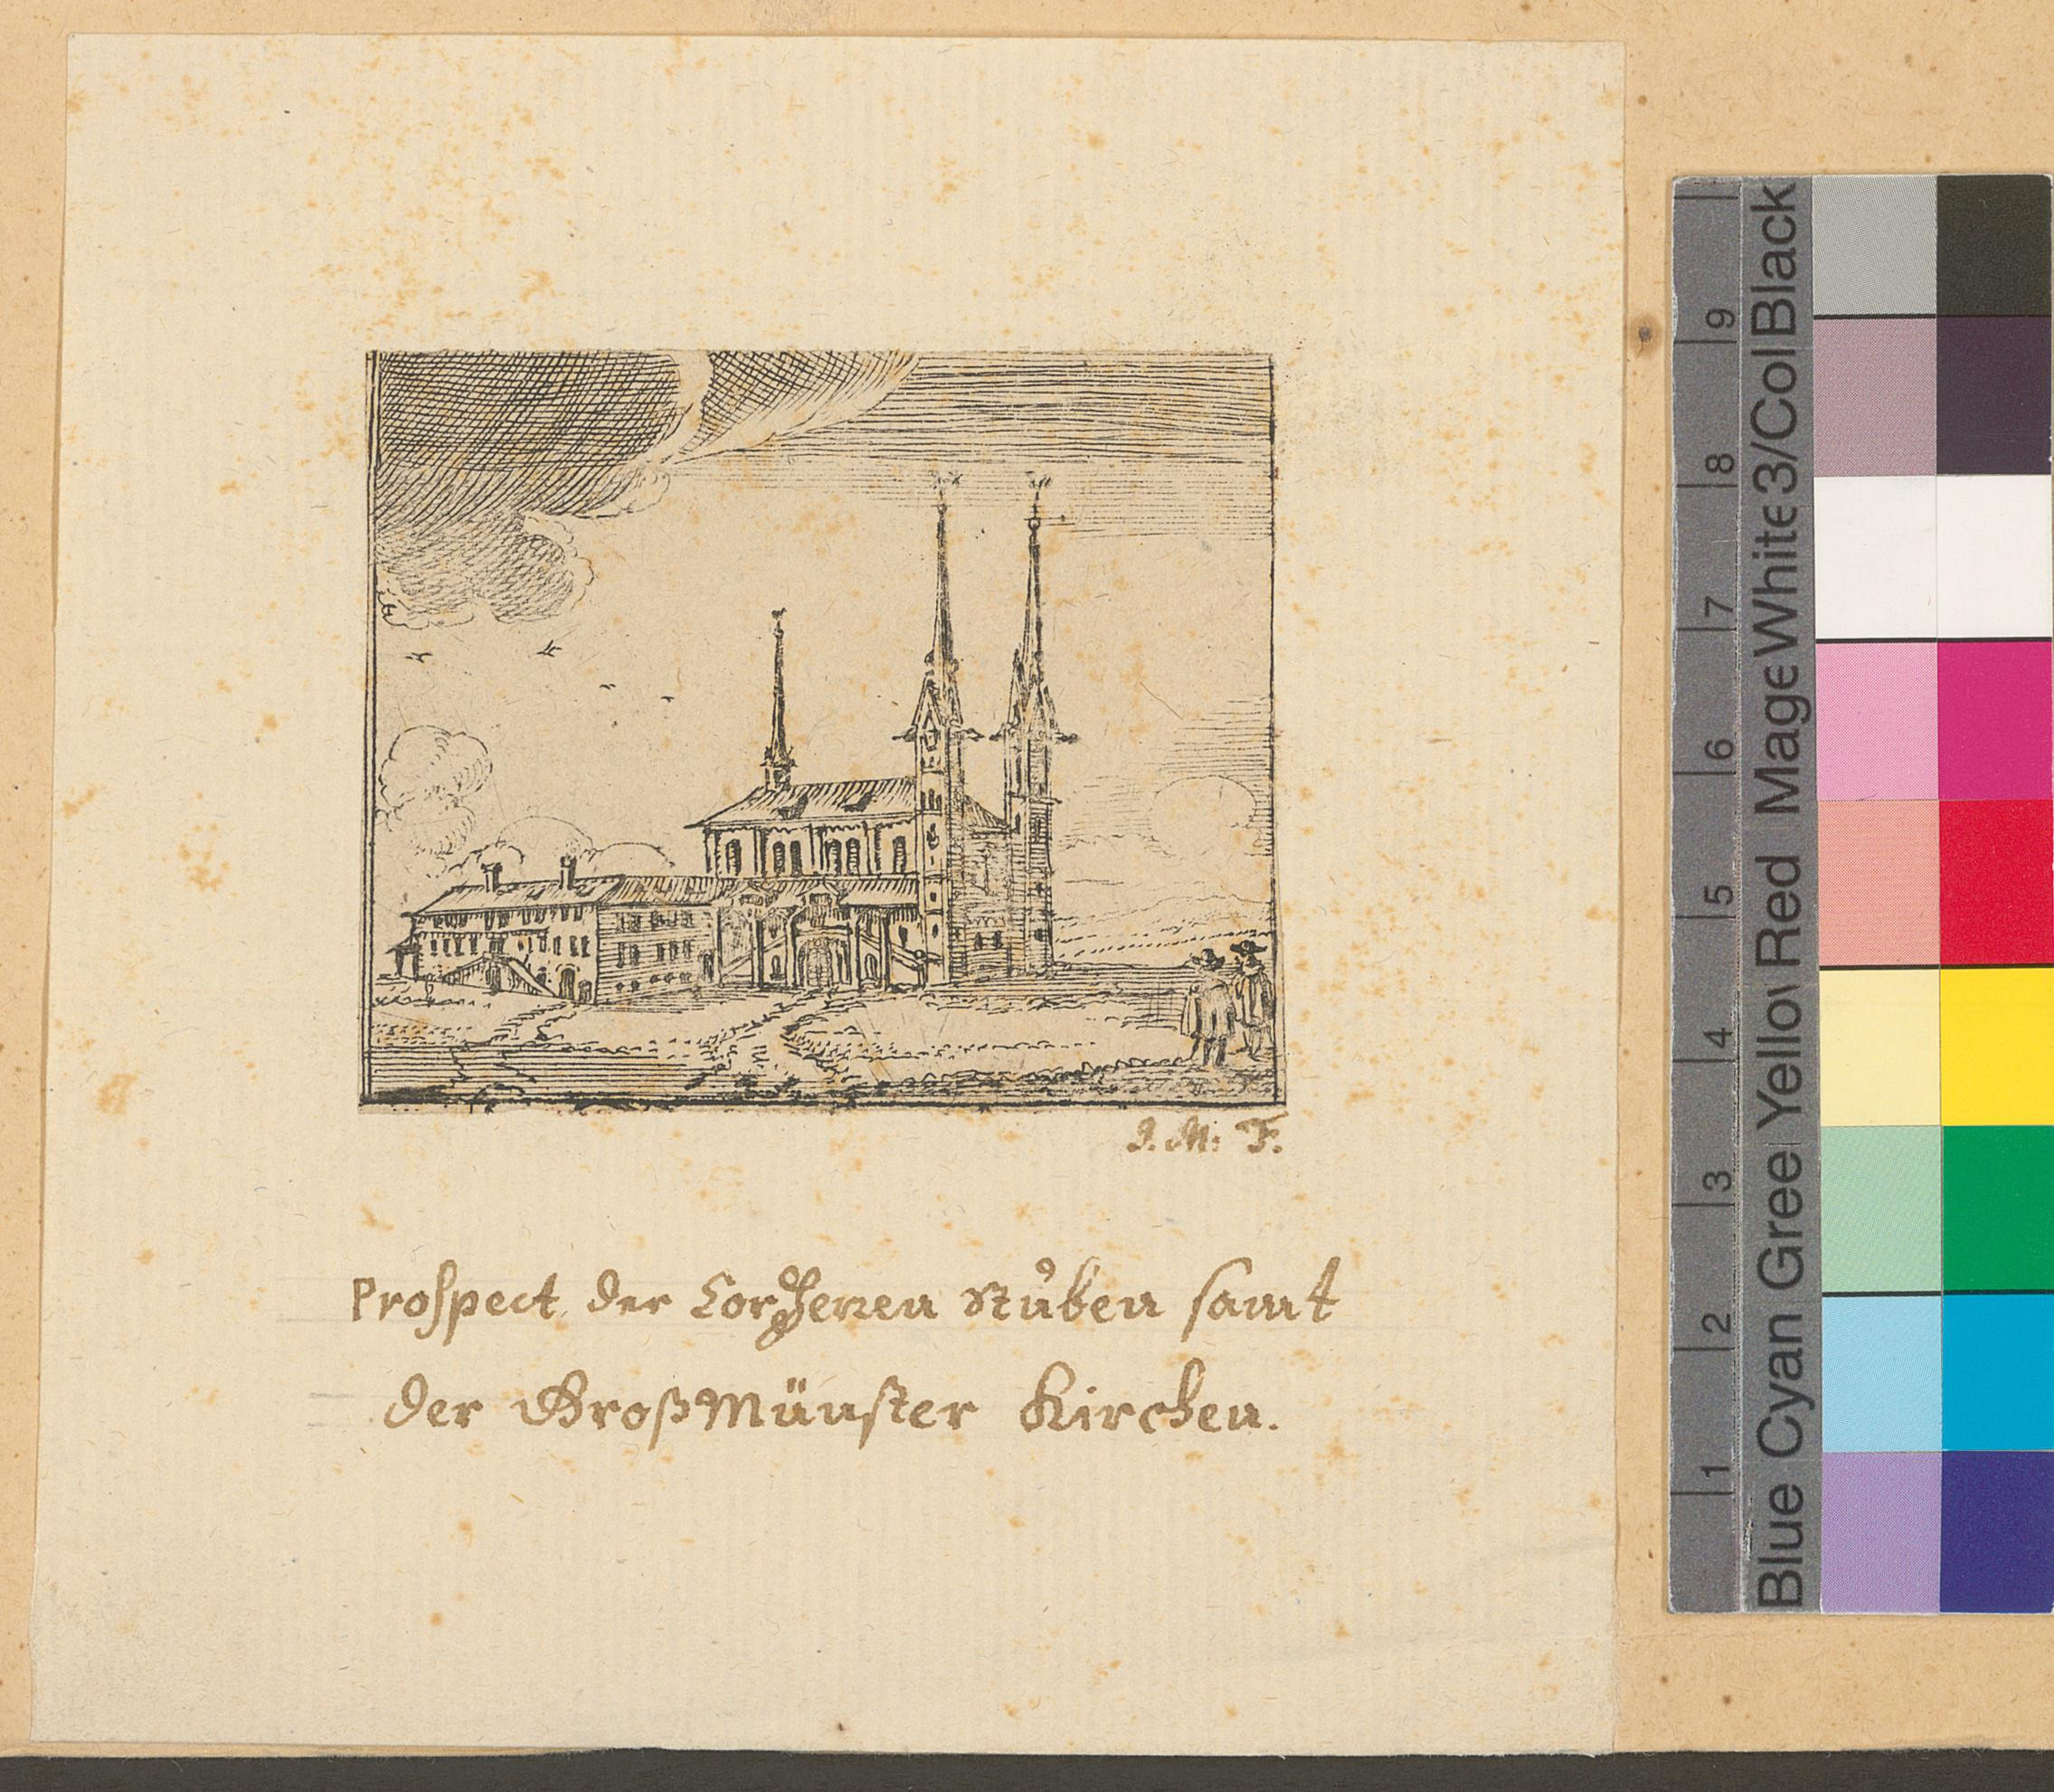 J. M. F.
Prospect der Corherren Stůben samt
der GroßMünster Kirchen.
Blue Cyan Gree Yellov Red Mage White 3/Col Black
1 2 3 4 5 6 7 8 9